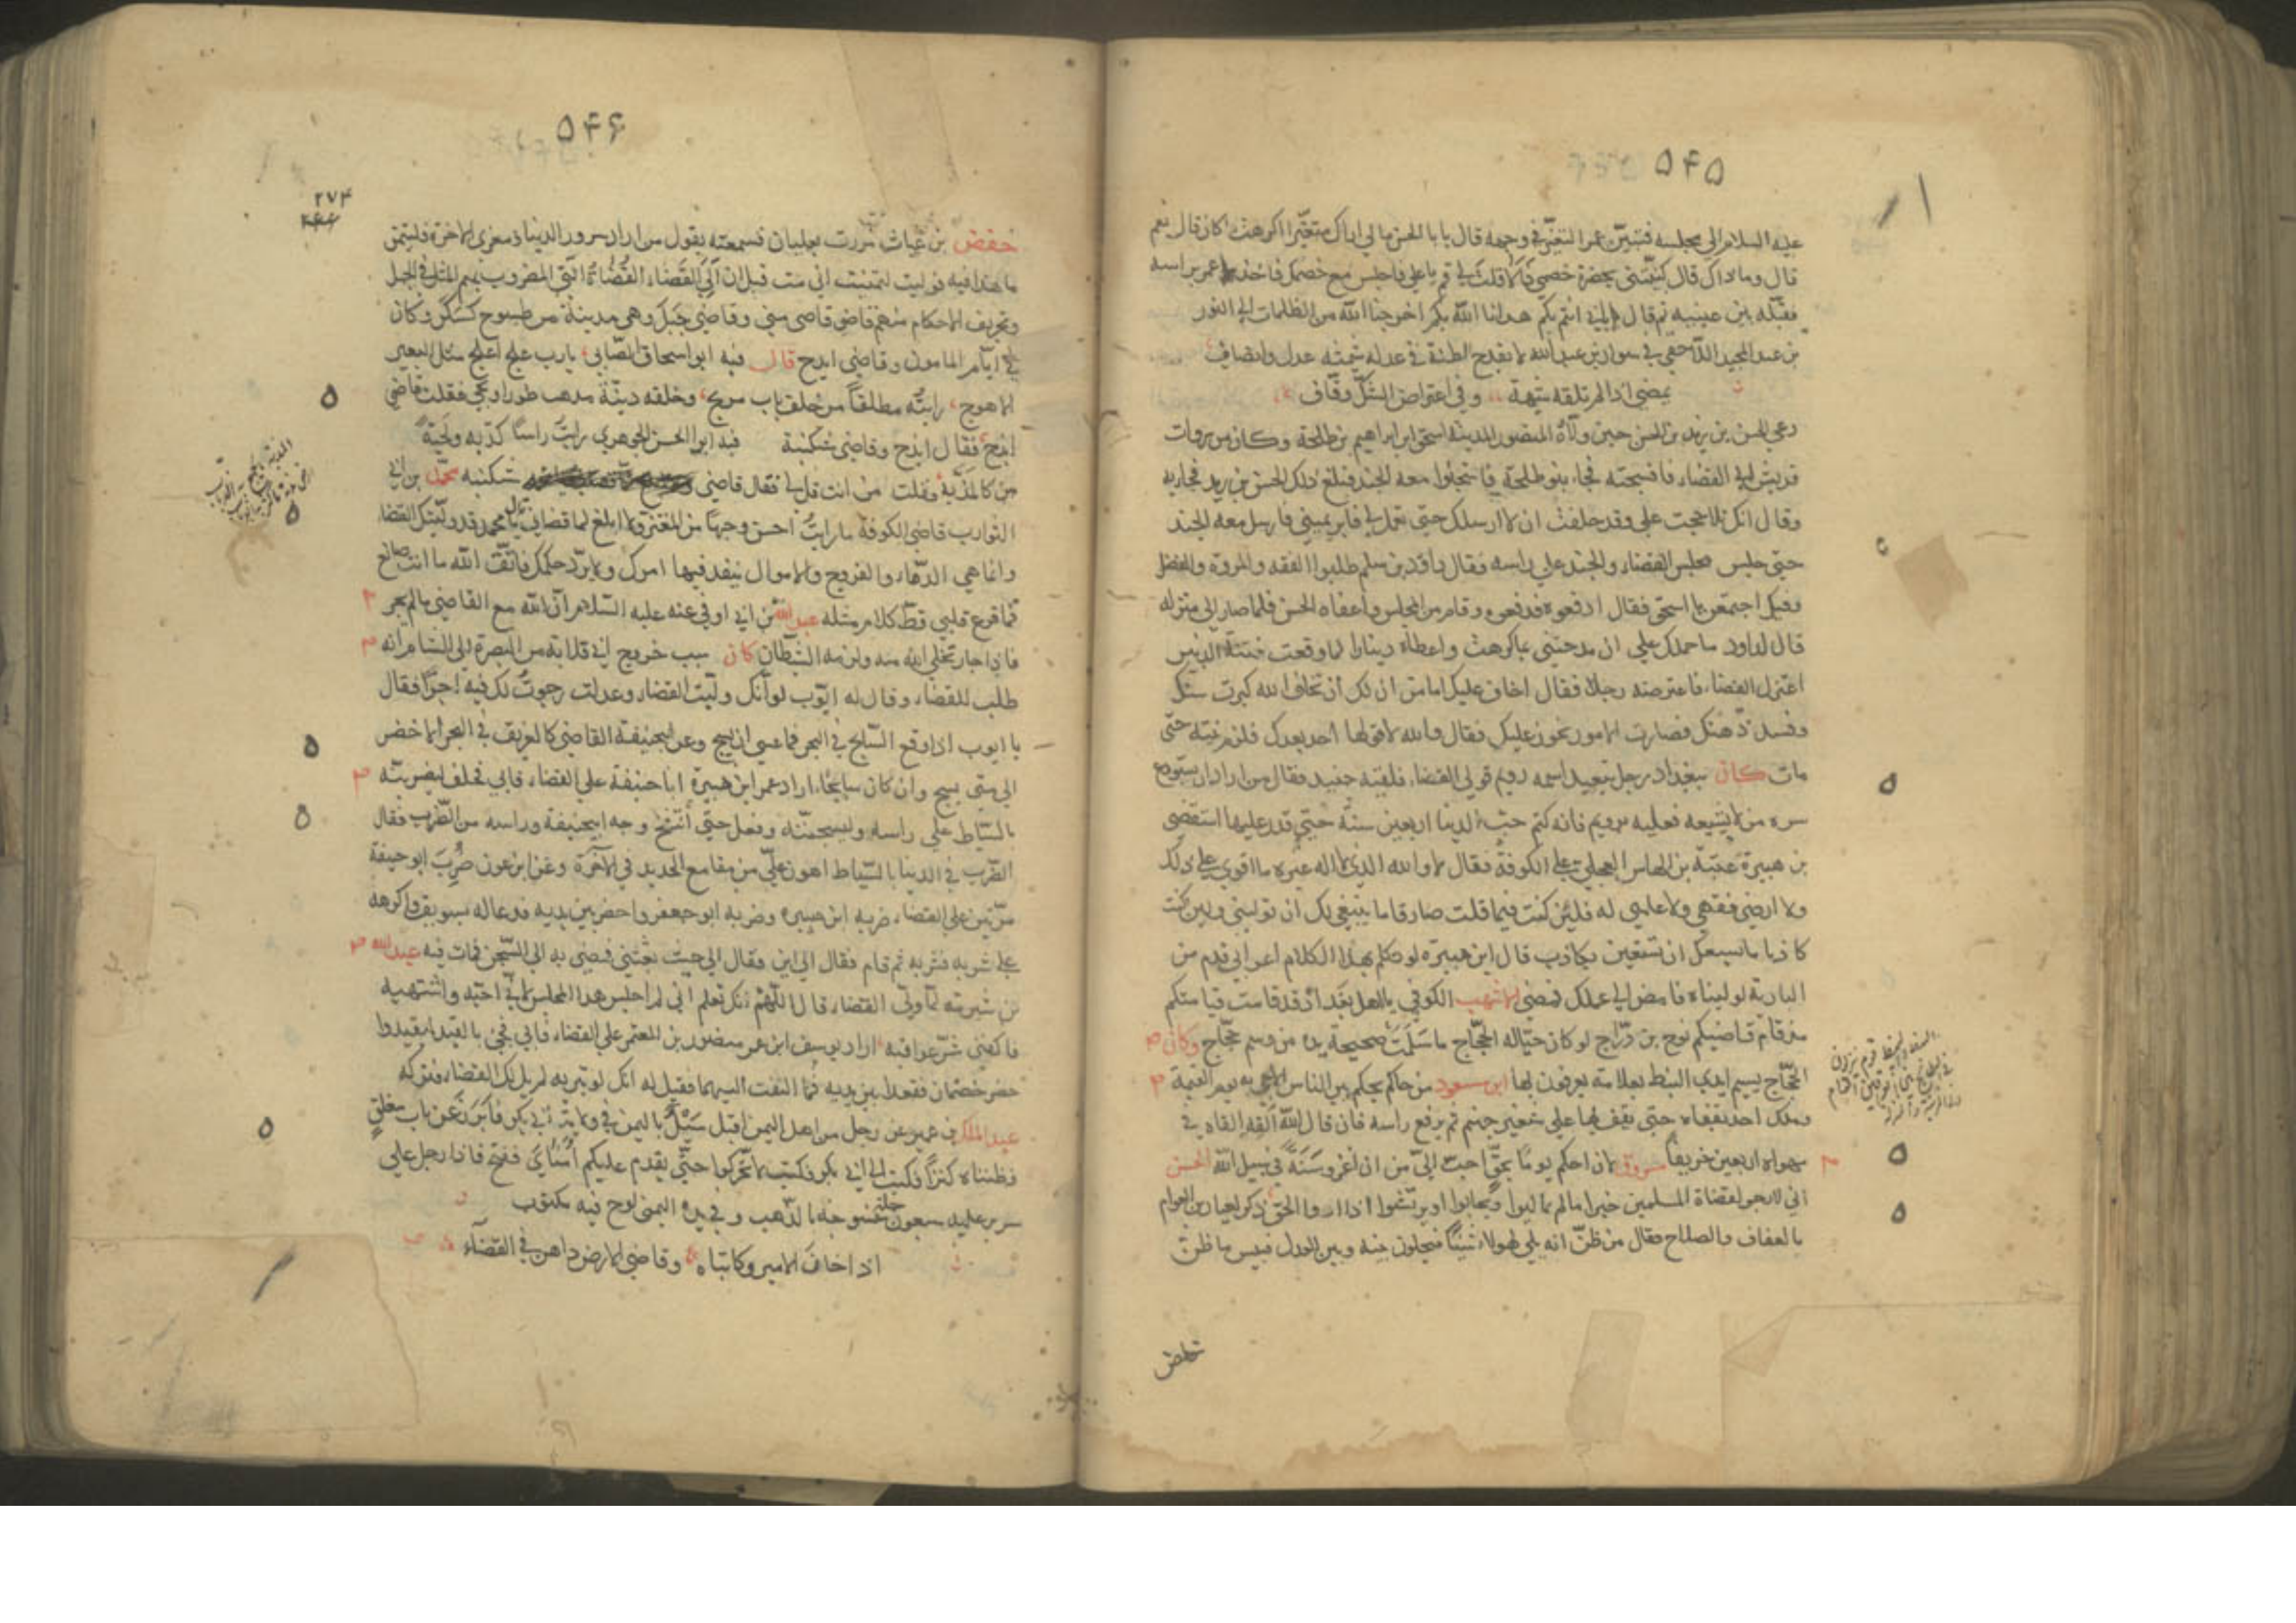 ۵۴۵
عليه السلام الى مجلسه فتبين عمر التغير في وجهه قال يا با الحسن مالي اراك متغيرا اكرهت ما كان قال نعم
قال وما ذاك قال كنيتني بحضرة خصمي هلا قلت لي قم يا علي فاجلس مع خصمك فاخذ عمر براسه
فقبله بين عينيه ثم قال بابي انتم بكم هدانا الله بكم اخرجنا الله من الظلمات الى النور
بن عبد المجيد اللاحقي في سوار بن عبد الله لا يقدح الظنة في عدله شيمته عدل وانصاف
يمضي اذا لم تلقه شبهة وفي اعتراض الشك وقاف
دعي الحسن بن زيد بن الحسن حين ولاه المنصور المدينة اسحق بن ابراهيم بن طلحة وكان من سروات
قريش الى القضاء فابى فسجنه فجاء بنو طلحة فانسجنوا معه الحبس فبلغ ذلك الحسن بن زيد فجاء به
وقال انك تلاججت علي وقد حلفت ان لا ارسلك حتى تعمل لي فابر يميني فارسل معه الجند
حتى جلس مجلس القضاء والجند على راسه فقال داود بن سلم طلبوا الفقه والمروة والفضل
وفيك اجتمعن يا اسحق فقال ادفعوه فدفعوه وقام من المجلس واعفاه الحسن فلما صار الى منزله
قال لداود ما حملك على ان مدحتني بما كرهت واعطاه دينارا لما وقعت فتنة
اعتزل القضاء فاعترضه رجل فقال اخاف عليك اما من ان لك ان تخاف الله كبرت سنك
وفسد ذهنك فصارت الامور تجوز عليك فقال والله لا قولها احد بعدك فلزم بيته حتى
مات كان ببغداد رجل يتعبد اسمه رويم فولي القضاء فلقيه جنيد فقال من اراد ان يستودع
سره من لا يشيعه فعليه برويم فانه كتم حب الدنيا اربعين سنة حتى قدر عليها استقضى
بن هبيرة عتبة بن النهاس العجلي على الكوفة فقال لا والله الذي لا اله غيره ما اقوى على ذلك
ولا ارضى فقهي ولا علمي له فلئن كنت فيما قلت صادقا ما ينبغي لك ان توليني ولئن كنت
كاذبا ما يسعك ان تستعين بكاذب قال ابن هبيرة لو تكلم بهذا الكلام اعرابي قدم من
البادية لوليناه فامض الى عملك فمضى الاشهب الكوفي يا اهل بغداد قد قامت قيامتكم
مذ قام قاضيكم نوح بن دراج لو كان حيا له الحجاج ما سلمت صحيحة يده من وسم حجاج وكان
الحجاج يسم ايدي النبط بعلامة يعرفون بها ابن مسعود من حاكم يحكم بين الناس الا جيء به يوم القيمة
وملك اخذ بقفاه حتى يقف بها على شفير جهنم ثم يرفع راسه فان قال الله القه القاه في
مهواه اربعين خريفا مسروق لان احكم يوما بحق احب الي من ان اغزو سنة في سبيل الله الحسن
اني لارجو لقضاة المسلمين خيرا ما لم يماليوا ويحابوا او يرتشوا اذا ارادوا الحق ذكر لعباد بن العوام
بالعفاف والصلاح فقال من ظن انه يلي لهولاء شيئا فيخلون بينه وبين العدل فبئس ما ظن
حفص
۵۴۶
۲۷۴
حفص بن غياث مررت بعليان فسمعته يقول من اراد سرور الدنيا وخزي الاخرة فليتمن
ما هذا فيه فوليت لتمنيت اني مت قبل ان الي القضاء القضاة التي المضروب بهم المثل في الجهل
وتحريف الاحكام منهم قاضي منى وقاضي جبل وهي مدينة من طسوج كسكر وكان
في ايام المامون وقاضي ايذج قال فيه ابو اسحاق الصابي يا رب علج اعلج مثل البعير
الاهوج رايته مطلقا من خلف باب مرتج وخلفه دنية تذهب طورا وتجي فقلت قاضي
ايذج فقال ايذج وقاضي شكنبة فيه ابو الحسن الجوهري رايت راسا كدبه ولحية
كالمذبه وقلت من انت قل لي فقال قاضي شكنبه محمد بن ابي
الشوارب قاضي الكوفة ما رايت احسن وجها من المعتز ولا ابلغ لما قضاني قال يا محمد قد وليتك القضاء
وانما هي الدماء والفروج والاموال ينفذ فيها امرك ولا يرد حكمك فاتق الله ما انت صانع
فما قرع قلبي قط كلام مثله عبد الله بن ابي اوفى عنه عليه السلام ان الله مع القاضي ما لم يجر
فاذا جار تخلى الله منه ولزمه الشيطان كان سبب خروج ابي قلابة من البصرة الى الشام انه
طلب للقضاء وقال له ايوب لو انك وليت القضاء وعدلت رجوت لك فيه اجرا فقال
يا ايوب اذا وقع السابح في البحر فما عسى ان يسبح وعن ابي حنيفة القاضي كالغريق في البحر الاخضر
الى متى يسبح وان كان سابحا اراد عمر ابن هبيرة ابا حنيفة على القضاء فابى فحلف ليضربنه
بالسياط على راسه وليسجننه وفعل حتى انتفخ وجه ابي حنيفة وراسه من الضرب فقال
الضرب في الدنيا بالسياط اهون علي من مقامع الحديد في الاخرة وعن ابن عون ضرب ابو حنيفة
مرتين على القضاء ضربه ابن هبيرة وضربه ابو جعفر واحضر بين يديه فدعا له بسويق واكرهه
على شربه فشربه ثم قام فقال الى اين فقال الى حيث بعثتني فمضى به الى السجن فمات فيه عبد الله
بن شبرمة لما ولي القضاء قال اللهم انك تعلم اني لم اجلس هذا المجلس الذي احبه واشتهيه
فاكفني شر عواقبه اراد يوسف ابن عمر منصور بن المعتمر على القضاء فابى فجيء بالقيد ليقيدوا
حضر خصمان فقعدا بين يديه فما التفت اليهما فقيل له انك لو نثرته لم يل لك القضاء فتركه
عبد الملك بن عمير عن رجل من اهل اليمن اقبل سيل باليمن في ولاية ابي بكر فابرز عن باب مغلق
فظنناه كنزا فكتب الى ابي بكر فكتب لا تحركوا حتى يقدم عليكم امنائي ففتح فاذا رجل على
سرير عليه سبعون حلة منسوجة بالذهب وفي يده اليمنى لوح فيه مكتوب
اذا خان الامير وكاتباه وقاضي الارض داهن في القضاء